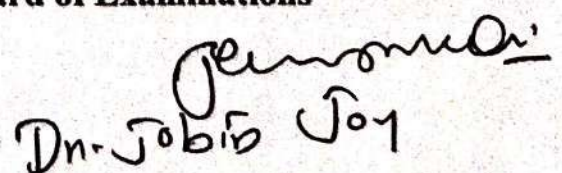 rd of Examinations
Dn. Jobin Joy